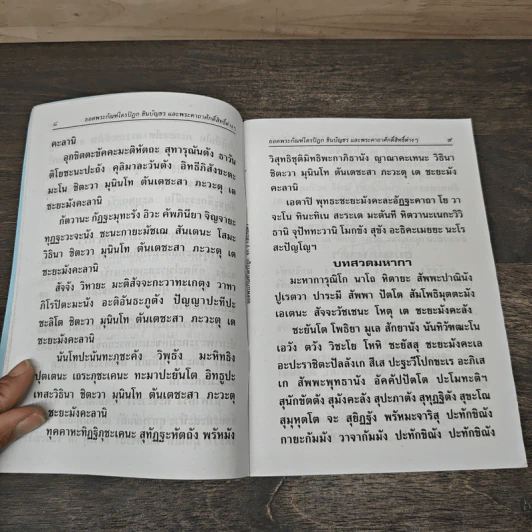 ๘ ยอดพระกัณฑ์ไตรปิฎก ชินบัญชร และพระคาถาศักดิ์สิทธิ์ต่างๆ
คะลานิ
อุกขิตตะขัคคะมะติหัตถะ สุทารุณันตัง ธาวัน
ติโยชะนะปะถัง คุลิมาละวันตัง อิทธีภิสังขะตะ
มะโน ชิตะวา มุนินโท ตันเตชะสา ภะวะตุ เต
ชะยะมังคะลานิ
กัตวานะ กัฏฐะมุทะรัง อิวะ คัพภินียา จิญจายะ
ทุฏฐะวะจะนัง ชะนะกายะมัชเฌ สันเตนะ โสมะ
วิธินา ชิตะวา มุนินโท ตันเตชะสา ภะวะตุ เต
ชะยะมังคะลานิ
สัจจัง วิหายะ มะติสัจจะกะวาทะเกตุง วาทา
ภิโรปิตะมะนัง อะติอันธะภูตัง ปัญญาปะทีปะ
ชะลิโต ชิตะวา มุนินโท ตันเตชะสา ภะวะตุ เต
ชะยะมังคะลานิ
นันโทปะนันทะภุชะคัง วิพุธัง มะหิทธิง
ปุตเตนะ เถระภุชะเคนะ ทะมาปะยันโต อิทธูปะ
เทสะวิธินา ชิตะวา มุนินโท ตันเตชะสา ภะวะตุ
เต ชะยะมังคะลานิ
ทุคคาหะทิฏฐิภุชะเคนะ สุทัฏฐะหัตถัง พรัหมัง
ยอดพระกัณฑ์ไตรปิฎก ชินบัญชร และพระคาถาศักดิ์สิทธิ์ต่างๆ ๙
วิสุทธิชุติมิทธิพะกาภิธานัง ญาณาคะเทนะ วิธินา
ชิตะวา มุนินโท ตันเตชะสา ภะวะตุ เต ชะยะมัง
คะลานิ
เอตาปิ พุทธะชะยะมังคะละอัฏฐะคาถา โย วา
จะโน ทินะทิเน สะระเต มะตันที หิตวานะเนกะวิวิ
ธานิ จุปัททะวานิ โมกขัง สุขัง อะธิคะเมยยะ นะโร
สะปัญโญฯ
บทสวดมหากาฯ
มะหาการุณิโก นาโถ หิตายะ สัพพะปาณินัง
ปูเรตวา ปาระมี สัพพา ปัตโต สัมโพธิมุตตะมัง
เอเตนะ สัจจะวัชเชนะ โหตุ เต ชะยะมังคะลัง
ชะยันโต โพธิยา มูเล สักยานัง นันทิวัฑฒะโน
เอวัง ตวัง วิชะโย โหหิ ชะยัสสุ ชะยะมังคะเล
อะปะราชิตะปัลลังเก สีเส ปะฐะวิโปกขะเร อะภิเส
เก สัพพะพุทธานัง อัคคัปปัตโต ปะโมทะติฯ
สุนักขัตตัง สุมังคะลัง สุปะภาตัง สุหุฏฐิตัง สุขะโณ
สุมุหุตโต จะ สุยิฏฐัง พรัหมะจาริสุ ปะทักขิณัง
กายะกัมมัง วาจากัมมัง ปะทักขิณัง ปะทักขิณัง